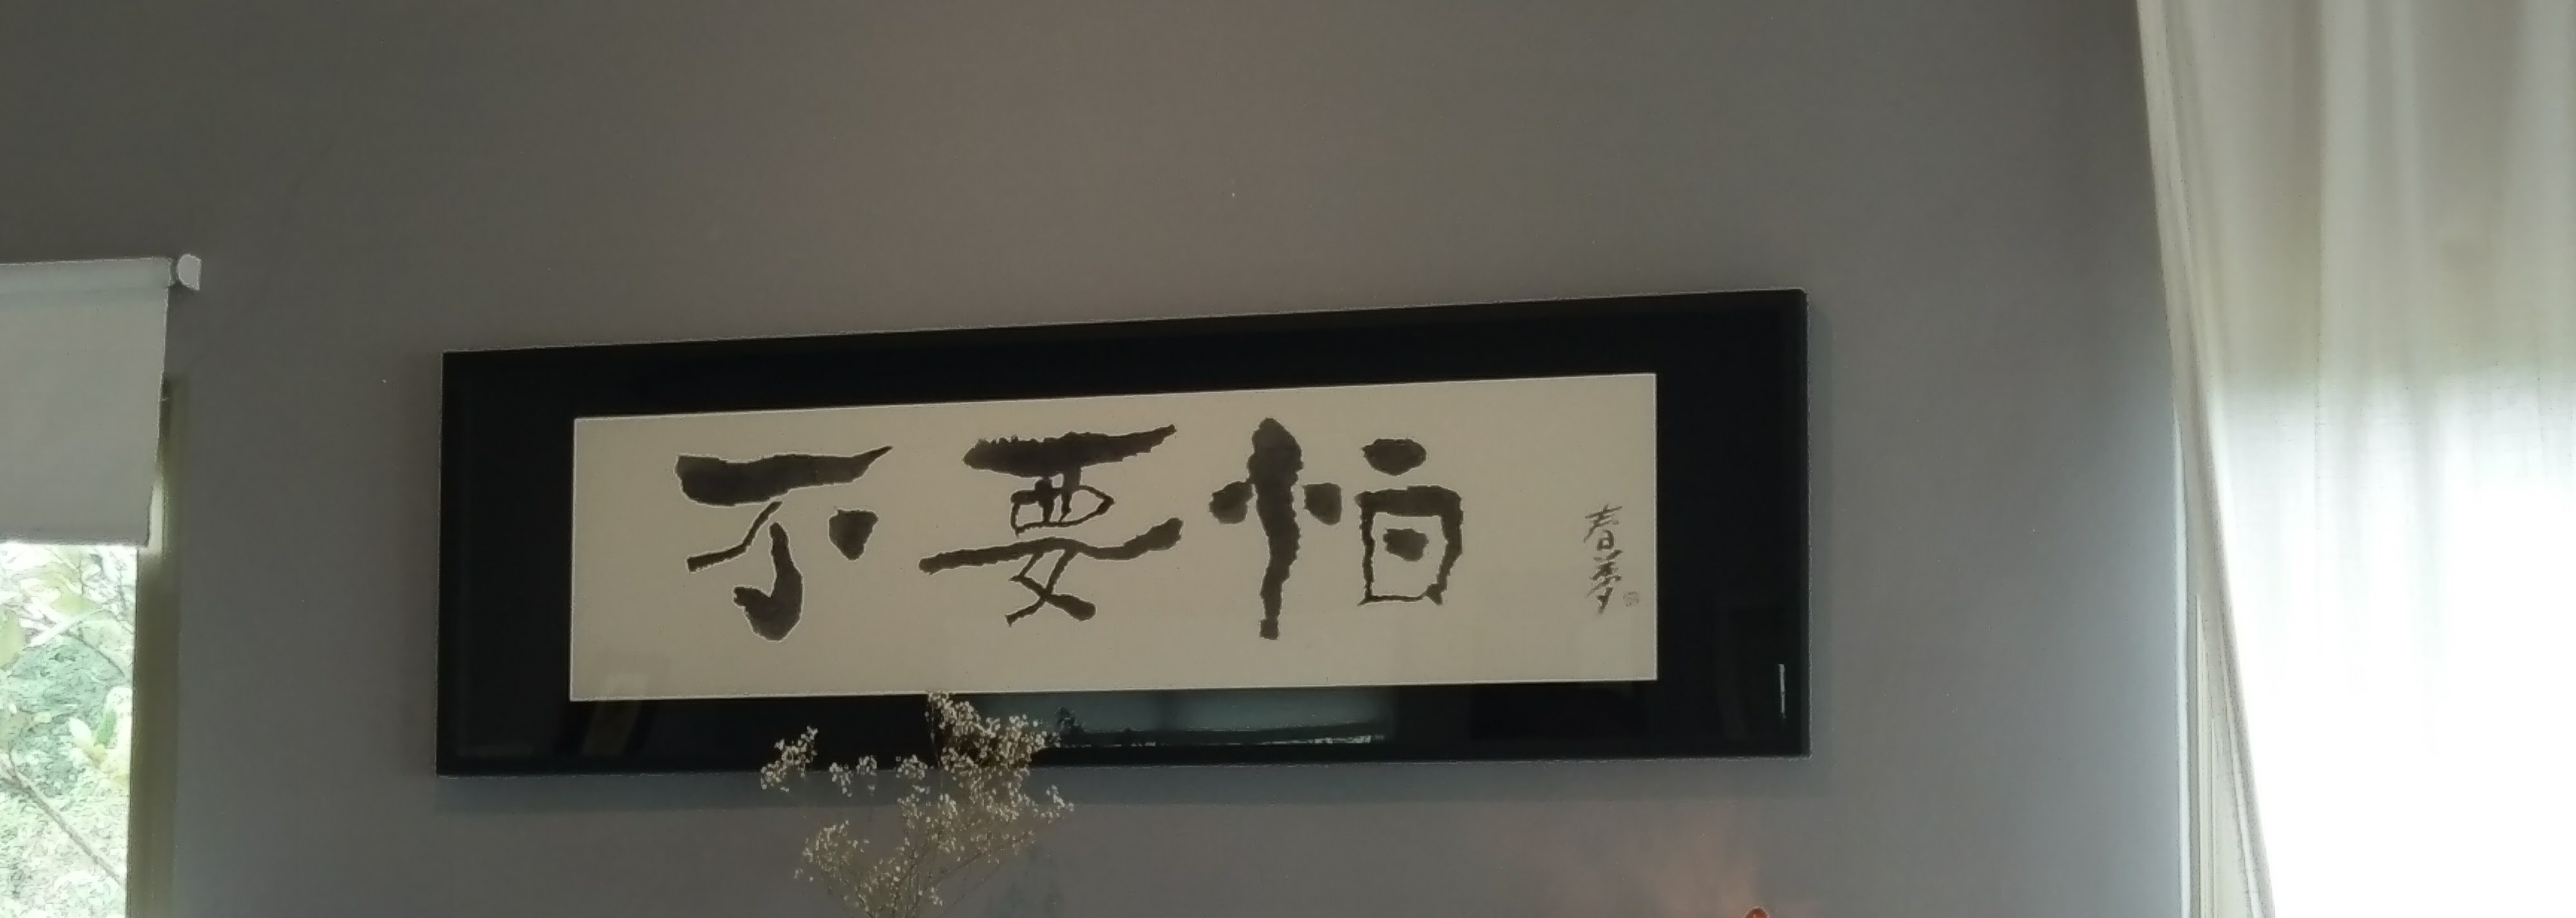 不要怕
春夢